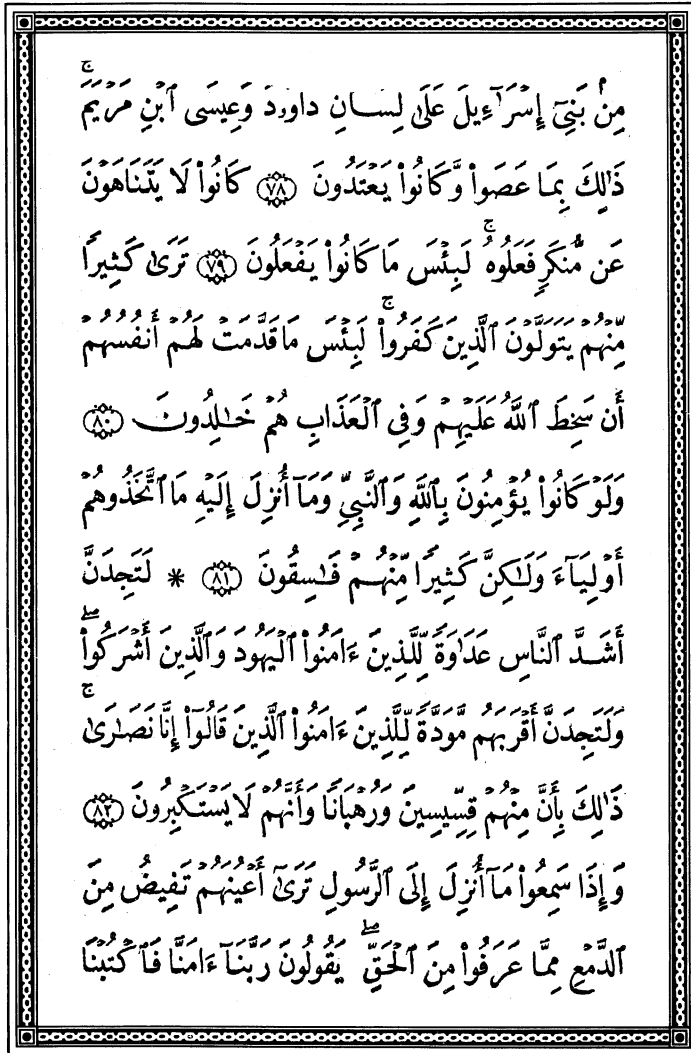 مِنۢ بَنِىٓ إِسْرَٰٓءِيلَ عَلَىٰ لِسَانِ دَاوُۥدَ وَعِيسَى ٱبْنِ مَرْيَمَ ۚ
ذَٰلِكَ بِمَا عَصَوا۟ وَّكَانُوا۟ يَعْتَدُونَ ﴿٧٨﴾ كَانُوا۟ لَا يَتَنَاهَوْنَ
عَن مُّنكَرٍ فَعَلُوهُ ۚ لَبِئْسَ مَا كَانُوا۟ يَفْعَلُونَ ﴿٧٩﴾ تَرَىٰ كَثِيرًا
مِّنْهُمْ يَتَوَلَّوْنَ ٱلَّذِينَ كَفَرُوا۟ ۚ لَبِئْسَ مَا قَدَّمَتْ لَهُمْ أَنفُسُهُمْ
أَن سَخِطَ ٱللَّهُ عَلَيْهِمْ وَفِى ٱلْعَذَابِ هُمْ خَـٰلِدُونَ ﴿٨٠﴾
وَلَوْ كَانُوا۟ يُؤْمِنُونَ بِٱللَّهِ وَٱلنَّبِىِّ وَمَآ أُنزِلَ إِلَيْهِ مَا ٱتَّخَذُوهُمْ
أَوْلِيَآءَ وَلَـٰكِنَّ كَثِيرًا مِّنْهُمْ فَـٰسِقُونَ ﴿٨١﴾ * لَتَجِدَنَّ
أَشَدَّ ٱلنَّاسِ عَدَٰوَةً لِّلَّذِينَ ءَامَنُوا۟ ٱلْيَهُودَ وَٱلَّذِينَ أَشْرَكُوا۟ ۖ
وَلَتَجِدَنَّ أَقْرَبَهُم مَّوَدَّةً لِّلَّذِينَ ءَامَنُوا۟ ٱلَّذِينَ قَالُوٓا۟ إِنَّا نَصَـٰرَىٰ ۚ
ذَٰلِكَ بِأَنَّ مِنْهُمْ قِسِّيسِينَ وَرُهْبَانًا وَأَنَّهُمْ لَا يَسْتَكْبِرُونَ ﴿٨٢﴾
وَإِذَا سَمِعُوا۟ مَآ أُنزِلَ إِلَى ٱلرَّسُولِ تَرَىٰٓ أَعْيُنَهُمْ تَفِيضُ مِنَ
ٱلدَّمْعِ مِمَّا عَرَفُوا۟ مِنَ ٱلْحَقِّ ۖ يَقُولُونَ رَبَّنَآ ءَامَنَّا فَٱكْتُبْنَا